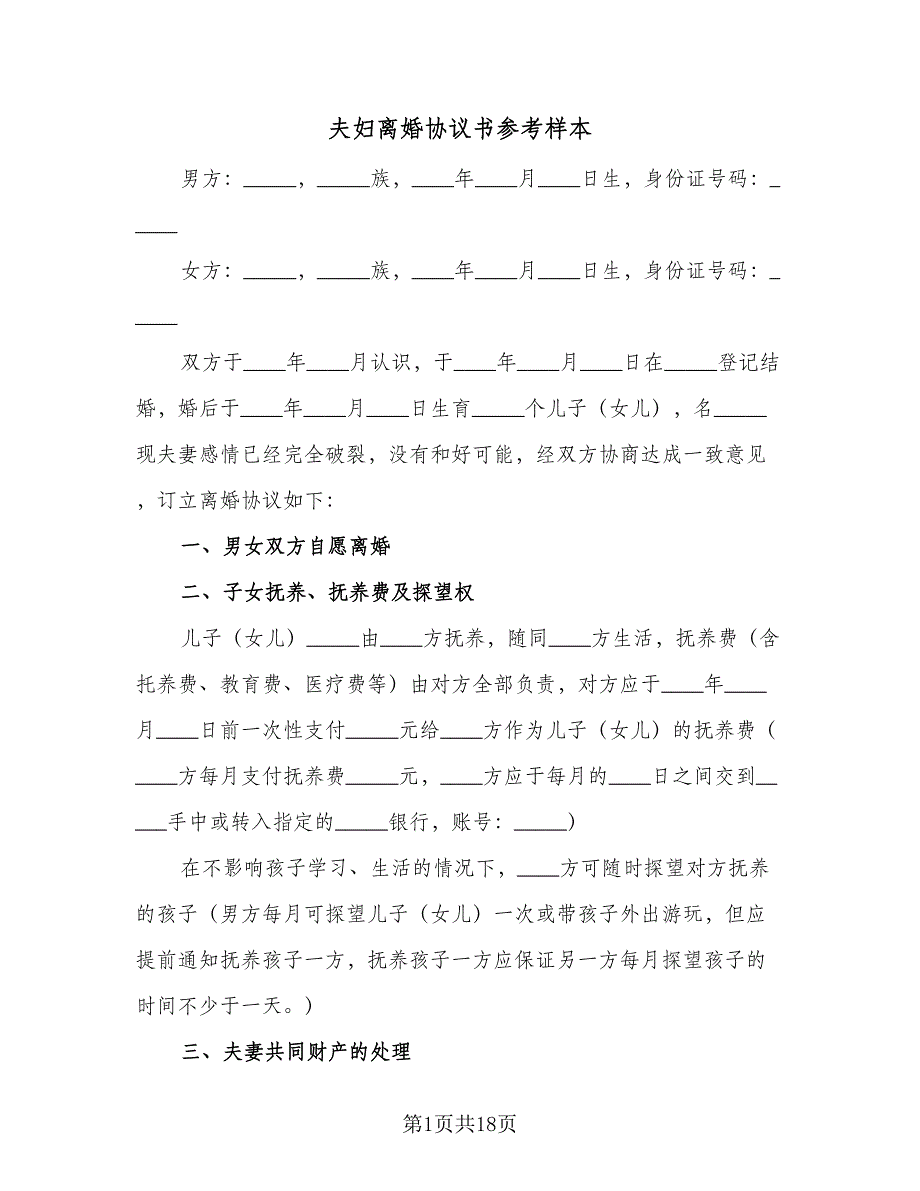 夫妇离婚协议书参考样本
男方：_____，_____族，____年____月____日生，身份证号码：_
____
女方：_____，_____族，____年____月____日生，身份证号码：_
____
双方于____年____月认识，于____年____月____日在_____登记结
婚，婚后于____年____月____日生育_____个儿子（女儿），名_____
现夫妻感情已经完全破裂，没有和好可能，经双方协商达成一致意见
，订立离婚协议如下：
一、男女双方自愿离婚
二、子女抚养、抚养费及探望权
儿子（女儿）_____由____方抚养，随同____方生活，抚养费（含
托养费、教育费、医疗费等）由对方全部负责，对方应于____年____
月____日前一次性支付_____元给____方作为儿子（女儿）的抚养费（
____方每月支付抚养费_____元，____方应于每月的____日之间交到__
___手中或转入指定的_____银行，账号：_____）
在不影响孩子学习、生活的情况下，____方可随时探望对方抚养
的孩子（男方每月可探望儿子（女儿）一次或带孩子外出游玩，但应
提前通知抚养孩子一方，抚养孩子一方应保证另一方每月探望孩子的
时间不少于一天。）
三、夫妻共同财产的处理
第1页共18页